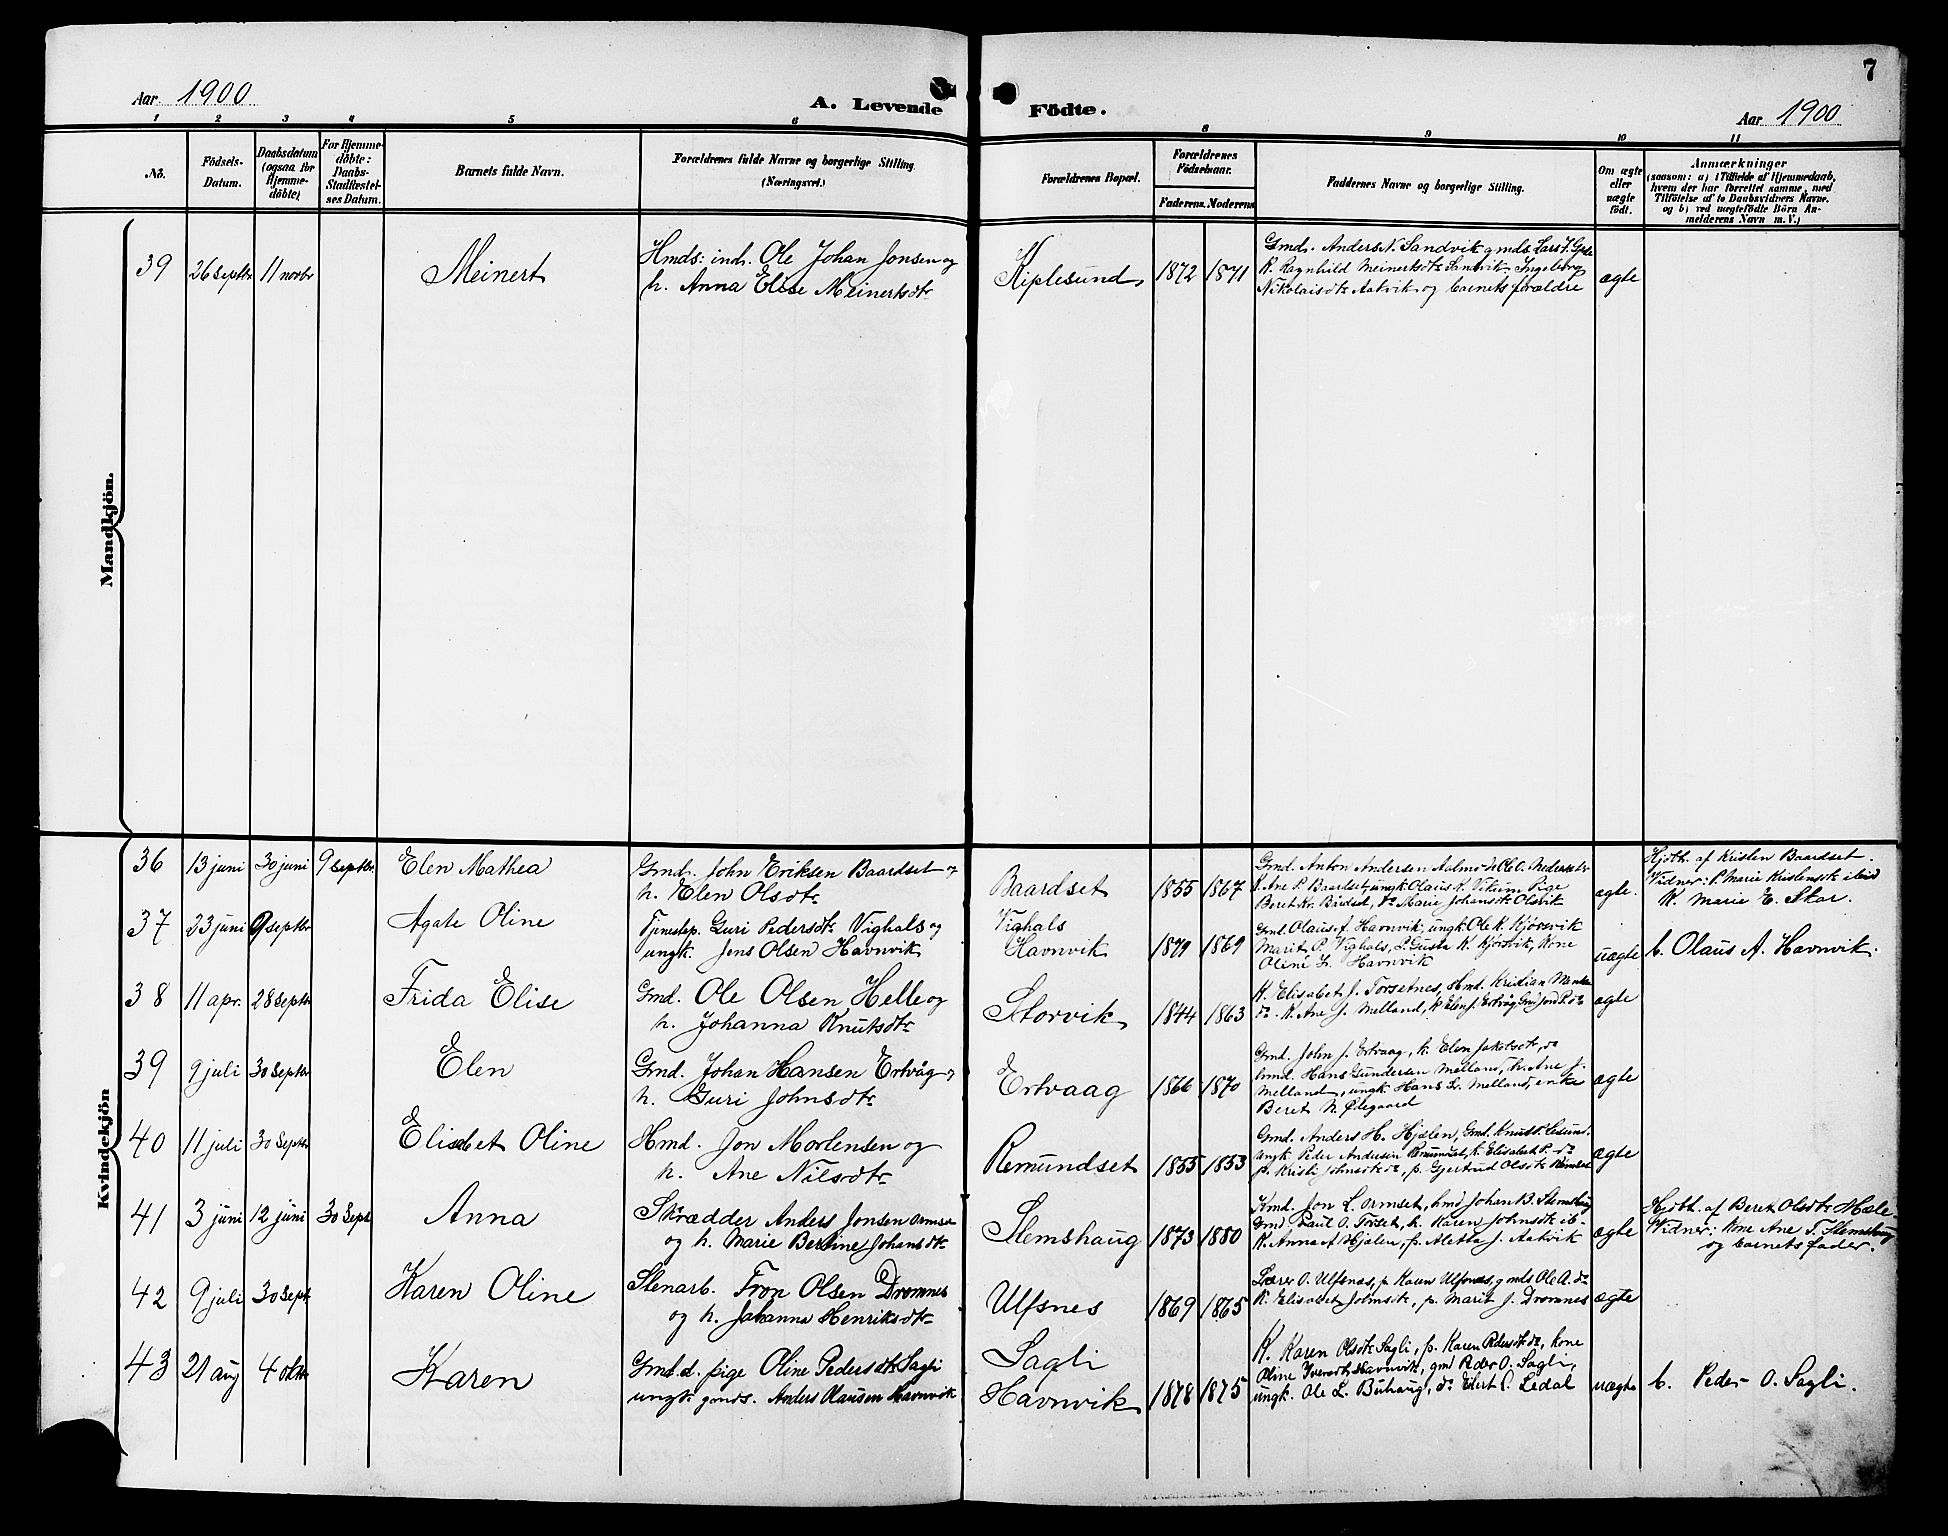 7
Aar 1900
A. Levende Födte.
Aar 1900
1 2 3 4 5 6 8 9 10 11
No. Födsels-Datum. Daabsdatum (ogsaa for Hjemme-döbte) For Hjemme-döbte: Daabs-Stadfæstel-ses Datum. Barnets fulde Navn. Forældrenes fulde Navne og borgerlige Stilling. (Næringsvei.) Forældrenes Bopæl. Forældrenes Födselsaar. Faderens. Moderens Faddernes Navne og borgerlige Stilling. Om ægte eller uægte födt. Anmærkninger (saasom: a) i Tilfælde af Hjemmedaab, hvem der har forrettet samme, med Tilföielse af to Daabsvidners Navne. og b) ved uægtefödte Börn An-melderens Navn m. V.)
Mandkjön.
39 26 septbr 11 novbr Meinert Hmds: ind. Ole Johan Jonsen og
h. Anna Elise Meinertsdtr Kiplesund 1872 1871 Gmd. Anders N. Sandvik gmds Lars J.
K. Ragnhild Meinertsdtr Sandvik, Ingeborg
Nikolaisdtr Aakvik og barnets forældre ægte
Kvindekjön
36 13 juni 30 juni 9 septbr. Elen Mathea Gmd. John Eriksen Baardset og
h. Elen Olsdtr Baardset 1855 1867 Gmd. Anton Andersen Aalmo Ole O.
Ane P. Baardset, ungk Olaus K. Pige
Beret Kr. Marie Johansdtr Olsvik ægte. Hjdbt. af Kristen Baardset.
Vidner: P. Marie Kristensdtr ibid
K. Marie E. Skar.
37 23 juni 9 septbr Agate Oline Tjenestep. Guri Pedersdtr Vighals og
ungk. Jens Olsen Havnvik Vighals
Havnvik 1879 1869 Gmd. Olaus A. Havnvik, ungk Ole K. Kjörsvik
Marit P. Vighals, P. Gusta K. Kjörsvik, Kone
Oline L. Havnvik uægte b. Olaus A. Havnvik.
38 11 apr. 28 septbr Frida Elise Gmd. Ole Olsen Helle og
h. Johanna Knutsdtr Storvik 1844 1863 K. Elisabet J. Torsetnes, Hmd. Kristian
do. K. Ane J. Melland, K Elen J. Ertvåg ægte
39 9 juli 30 septbr Elen Gmd. Johan Hansen Ertvåg og
h. Guri Johnsdtr Ertvaag 1866 1870 Gmd. John J. Ertvaag, k. Elen Jakobsdtr, do
Gmd. Hans Gundersen Melland, k. Ane J.
Melland, ungk Hans L. Melland, enke
Beret N. Ødegaard ægte
40 11 juli 30 septbr Elisabet Oline Hmd. Jon Mortensen og
h. Ane Nilsdtr Remundset 1855 1853 Gmd. Anders H. Hjælen, Gmd. Knut
ungk Peder Andersen Remundset, k. Elisabet P. do
p. Kristi Johnsdtr do, p. Gjertrud Olsdtr ægte
41 3 juni 12 juni 30 Sept Anna Skrædder Anders Jonsen Ormset
og h. Marie Bertine Johansdtr Stemshaug 1873 1880 Kmd. Jon L. Ormset, hmd Johan B. Stemshaug
Gmd Paul O. Torset, k. Karen Johnsdtr ib.
K. Anna A Hjælen, p. Aletta J. Aakvik ægte Hjdbt. af Beret Olsdtr Hæle.
Vidner: Kone Ane T. Stemshaug
og barnets fader.
42 9 juli 30 Sept Karen Oline Stenarb. Tron Olsen Drømnes
og h. Johanna Henriksdtr Ulfsnes 1869 1865 Lærer O. Ulfsnæs, p. Karen Ulfsnæs, gmds Ole A. do
K. Elisabet Johnsdtr, p. Marit J. Drømnes ægte
43 21 aug 4 oktr Karen Gmd.d. pige Oline Pedersdtr Sagli
ungk gmds. Anders Olausen Havnvik Sagli
Havnvik 1878 1875 K. Karen Olsdtr Sagli, p. Karen Pedersdtr do, kone
Oline Iversdtr Havnvik, gmd Peder O. Sagli,
ungk. Ole L. Buhaug, do Elert P. Ledal uægte b. Peder O. Sagli.